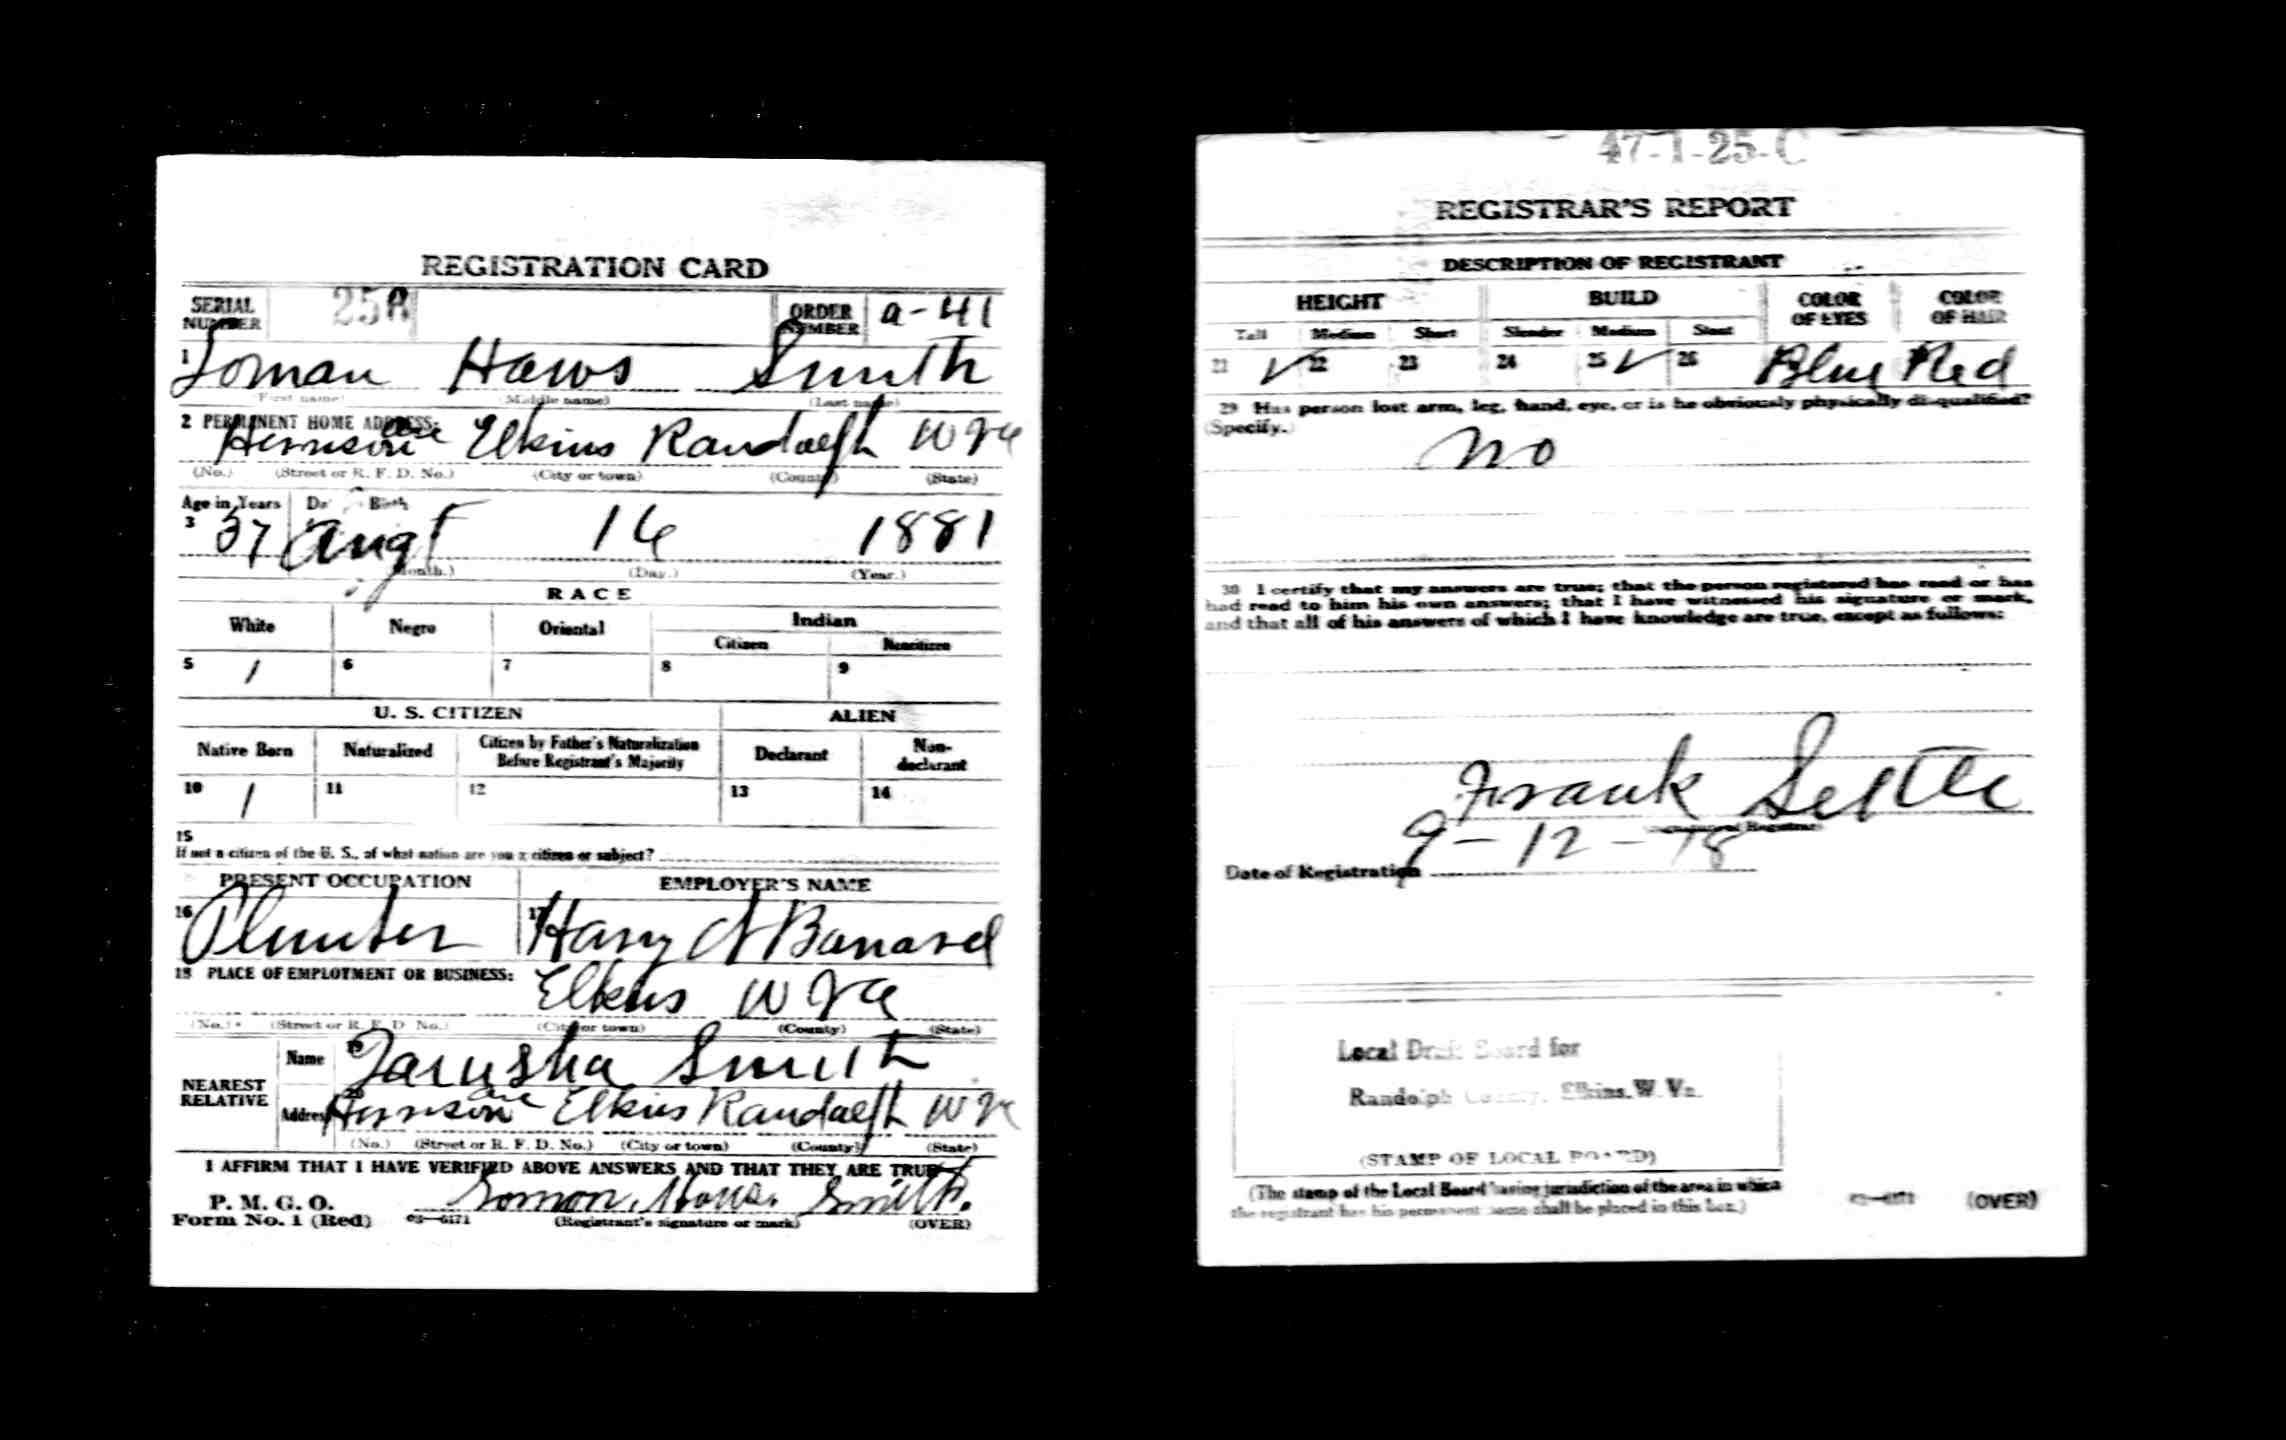 REGISTRATION CARD
SERIAL NUMBER 258 ORDER NUMBER a-41
1 Loman Haws Smith
(First name) (Middle name) (Last name)
2 PERMANENT HOME ADDRESS:
Herrison ave Elkins Randolph W Va
(No.) (Street or R. F. D. No.) (City or town) (County) (State)
Age in Years Date of Birth
3 37 Augt 16 1881
(Month.) (Day.) (Year.)
RACE
White Negro Oriental Indian
Citizen Noncitizen
5 / 6 7 8 9
U. S. CITIZEN ALIEN
Native Born Naturalized Citizen by Father's Naturalization Before Registrant's Majority Declarant Non-declarant
10 / 11 12 13 14
15
If not a citizen of the U. S., of what nation are you a citizen or subject?
PRESENT OCCUPATION EMPLOYER'S NAME
16 Plumber 17 Harry A Banard
18 PLACE OF EMPLOYMENT OR BUSINESS:
Elkins W Va
(No.) (Street or R. F. D. No.) (City or town) (County) (State)
NEAREST RELATIVE Name 19 Tarusha Smith
Address 20 Herrison ave Elkins Randolph W Va
(No.) (Street or R. F. D. No.) (City or town) (County) (State)
I AFFIRM THAT I HAVE VERIFIED ABOVE ANSWERS AND THAT THEY ARE TRUE
P. M. G. O.
Form No. 1 (Red) 03—6171 Loman Haws Smith.
(Registrant's signature or mark) (OVER)
47-1-25-C
REGISTRAR'S REPORT
DESCRIPTION OF REGISTRANT
HEIGHT BUILD COLOR OF EYES COLOR OF HAIR
Tall Medium Short Slender Medium Stout
21 ✓ 22 23 24 25 ✓ 26 Blue Red
29 Has person lost arm, leg, hand, eye, or is he obviously physically disqualified?
(Specify.)
No
30 I certify that my answers are true; that the person registered has read or has
had read to him his own answers; that I have witnessed his signature or mark,
and that all of his answers of which I have knowledge are true, except as follows:
Frank Settle
(Signature of Registrar)
Date of Registration 9-12-18
Local Draft Board for
Randolph County, Elkins, W. Va.
(STAMP OF LOCAL BOARD)
(The stamp of the Local Board having jurisdiction of the area in which
the registrant has his permanent home shall be placed in this box.)
03—6171 (OVER)